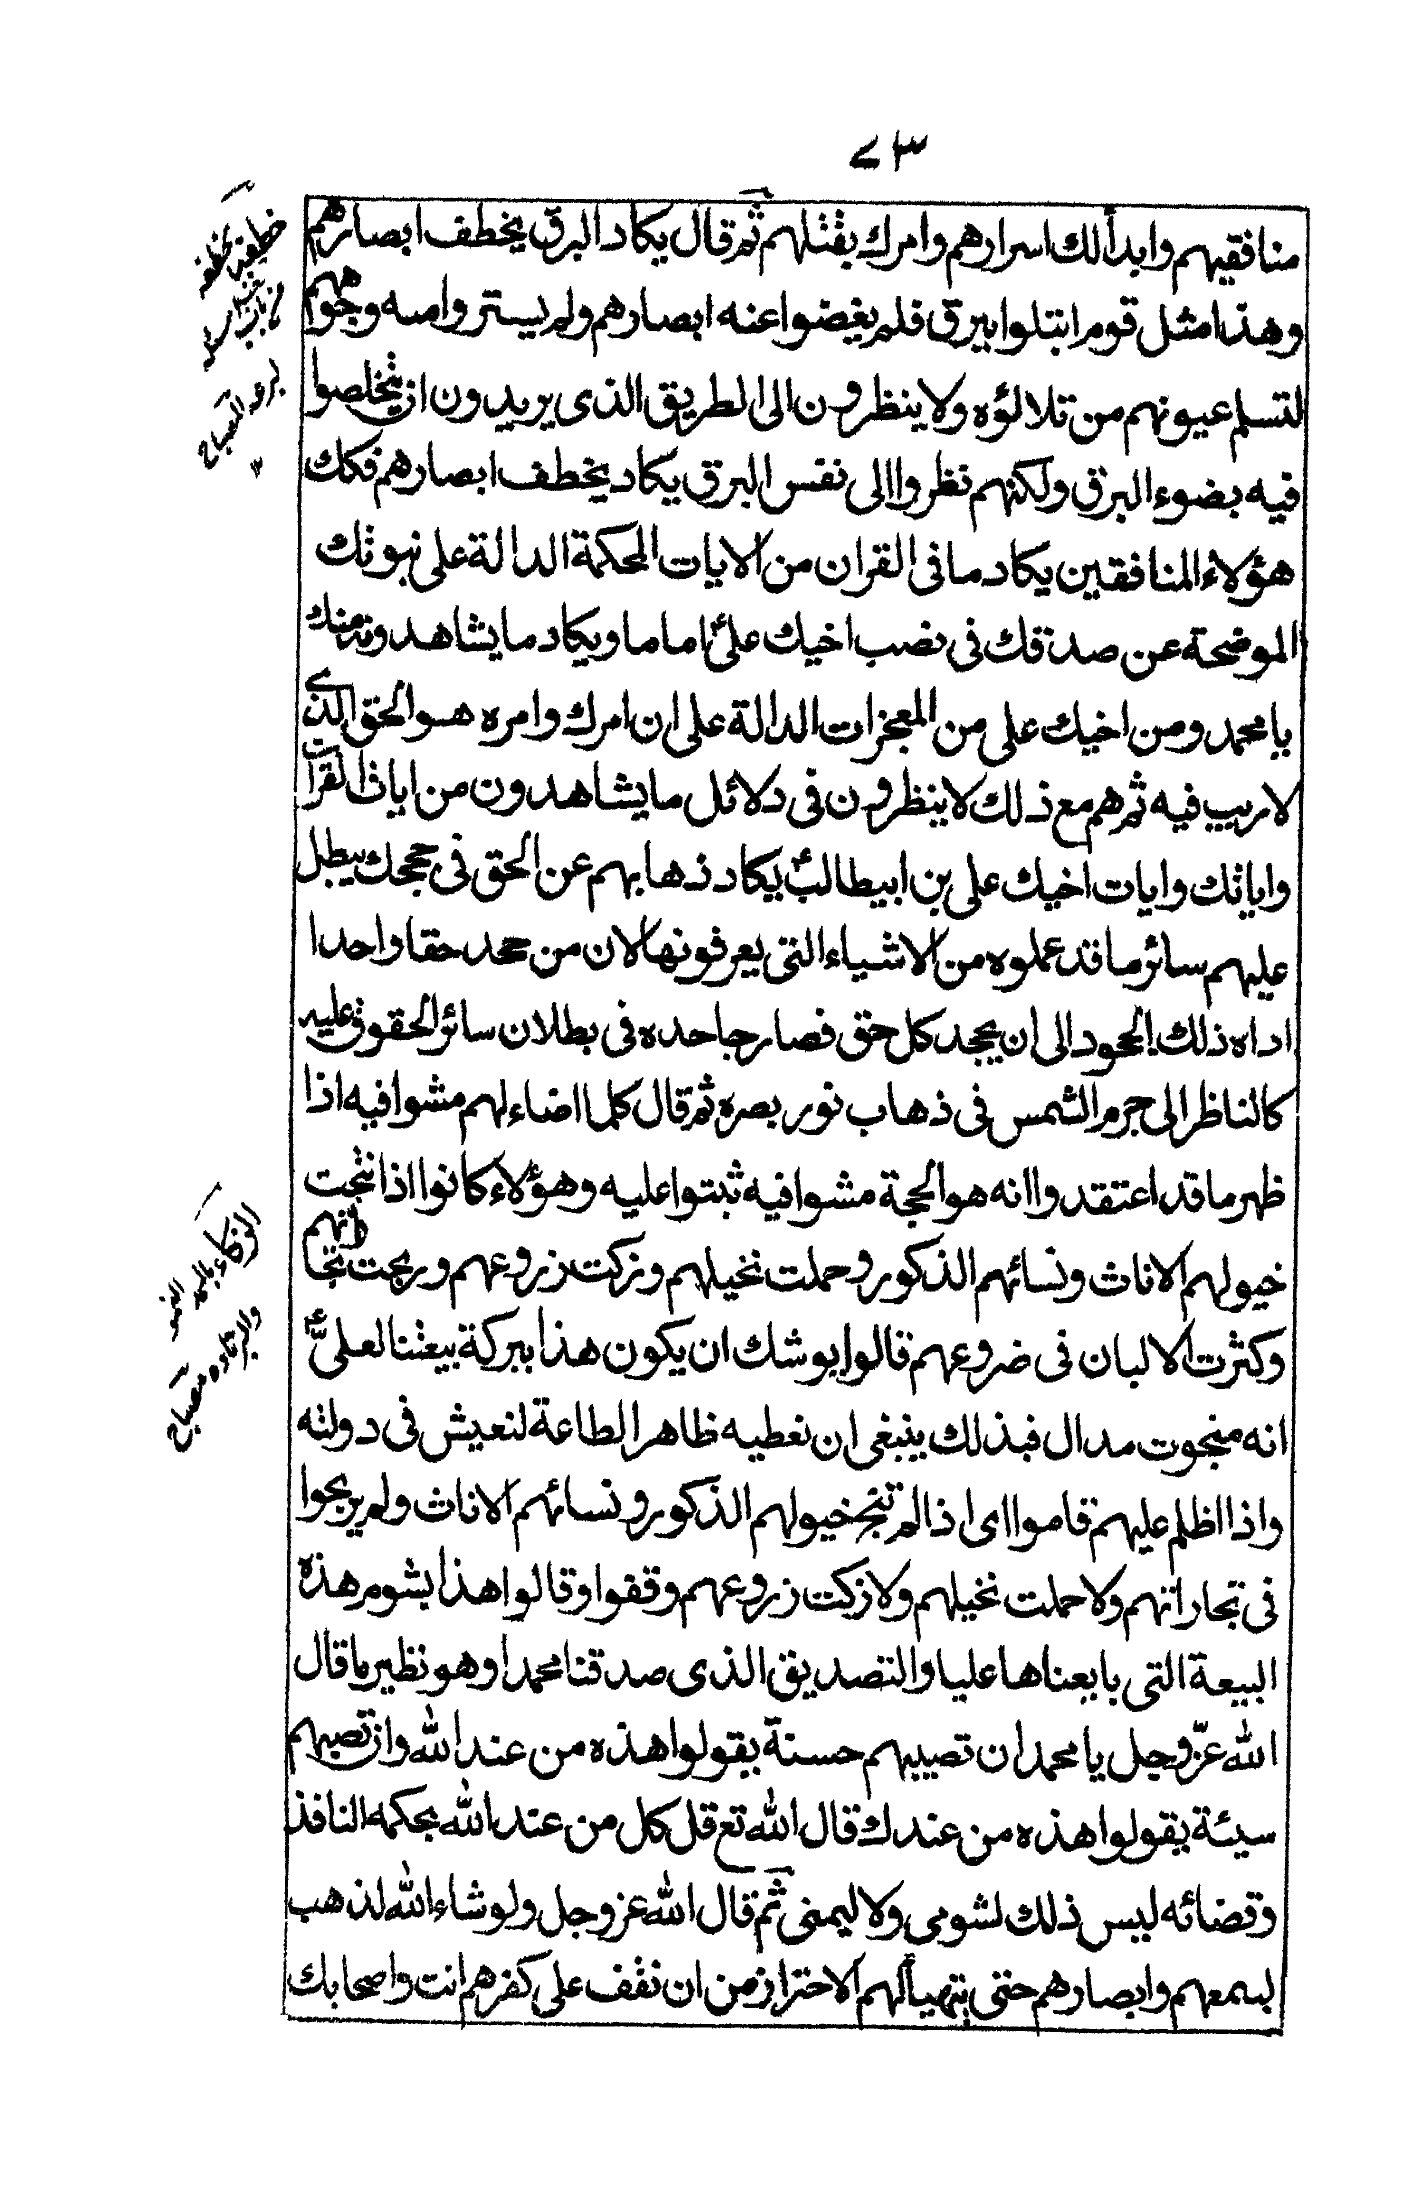 ٧٣
منافقيهم وابدأ لك اسرارهم وامرك بقتلهم ثم قال يكاد البرق يخطف ابصارهم
وهذا مثل قوم ابتلوا ببرق فلم يغضوا عنه ابصارهم ولم يستروا منه وجوههم
لتسلم عيونهم من تلالؤه ولا ينظرون الى الطريق الذى يريدون ان يتخلصوا
فيه بضوء البرق ولكنهم نظروا الى نفس البرق يكاد يخطف ابصارهم فكك
هؤلاء المنافقين يكاد ما فى القران من الايات المحكمة الدالة على نبوتك
الموضحة عن صدقك فى نصب اخيك علىؑ اماما ويكاد ما يشاهدونه منك
يا محمد ومن اخيك على من المعجزات الدالة على ان امرك وامره هو الحق الذى
لا ريب فيه ثم هم مع ذلك لا ينظرون فى دلائل ما يشاهدون من ايات القران
واياتك وايات اخيك على بن ابيطالبؑ يكاد ذهابهم عن الحق فى حججك يبطل
عليهم سائر ما قد عملوه من الاشياء التى يعرفونها لان من جحد حقا واحدا
اداه ذلك الجحود الى ان يجحد كل حق فصار جاحده فى بطلان سائر الحقوق عليه
كالناظر الى جرم الشمس فى ذهاب نور بصره ثم قال كلما اضاء لهم مشوا فيه اذا
ظهر ما قد اعتقدوا انه هو الحجة مشوا فيه ثبتوا عليه وهؤلاء كانوا اذا نتجت
خيولهم الاناث ونسائهم الذكور وحملت نخيلهم وزكت زروعهم وربحت تجاراتهم
وكثرت الالبان فى ضروعهم قالوا يوشك ان يكون هذا ببركة بيعتنا لعلىؑ
انه منجوت مدال فبذلك ينبغى ان نعطيه ظاهر الطاعة لنعيش فى دولته
واذا اظلم عليهم قاموا اى اذا لم تنتج خيولهم الذكور ونسائهم الاناث ولم يربحوا
فى تجاراتهم ولا حملت نخيلهم ولا زكت زروعهم وقفوا وقالوا هذا بشوم هذه
البيعة التى بايعناها عليا والتصديق الذى صدقنا محمدا وهو نظير ما قال
الله عزّ وجل يا محمد ان تصيبهم حسنة يقولوا هذه من عند الله وان تصبهم
سيئة يقولوا هذه من عندك قال الله تع قل كل من عند الله بحكمه النافذ
وقضائه ليس ذلك لشومى ولا ليمنى ثم قال الله عز وجل ولو شاء الله لذهب
بسمعهم وابصارهم حتى يتهيأ لهم الاحتراز من ان تقف على كفرهم انت واصحابك
خطفه يخطفه
المصباح
١٢
الزكاء بالمد النمو
والزيادة مصباح